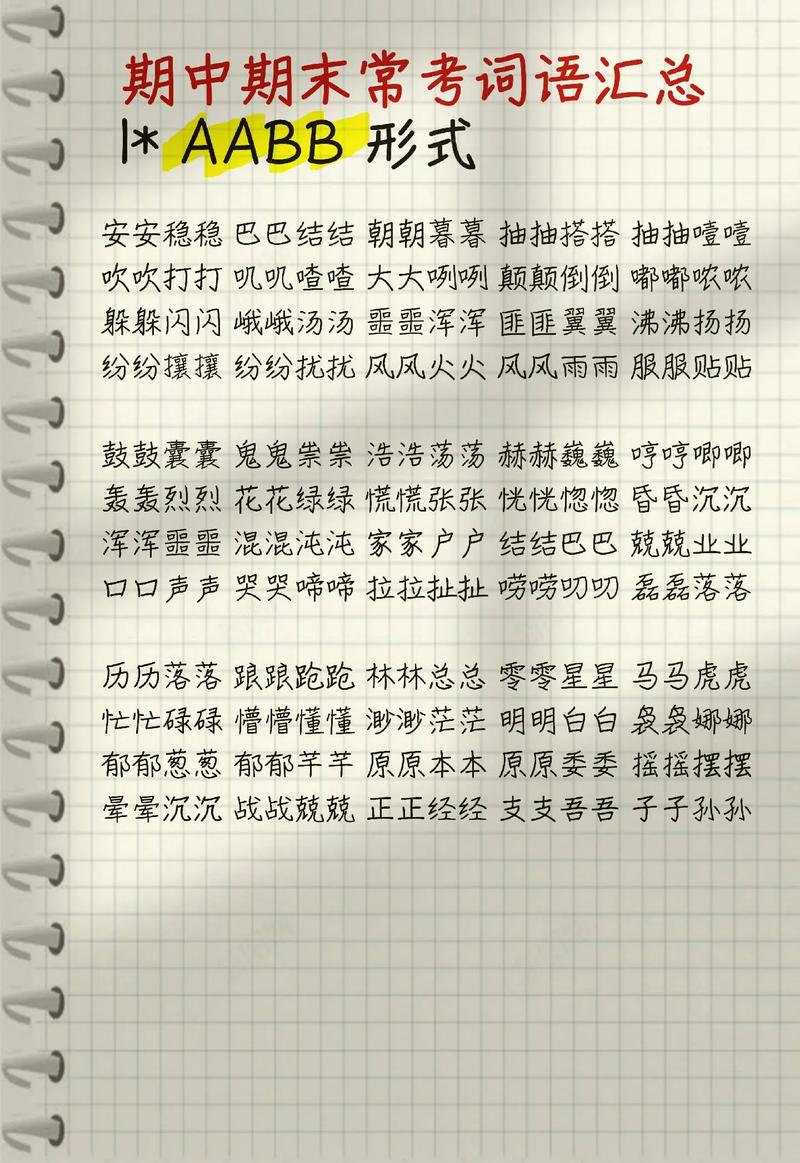 期中期末常考词语汇总
1* AABB 形式
安安稳稳 巴巴结结 朝朝暮暮 抽抽搭搭 抽抽噎噎
吹吹打打 叽叽喳喳 大大咧咧 颠颠倒倒 嘟嘟哝哝
躲躲闪闪 峨峨汤汤 噩噩浑浑 匪匪翼翼 沸沸扬扬
纷纷攘攘 纷纷扰扰 风风火火 风风雨雨 服服贴贴
鼓鼓囊囊 鬼鬼祟祟 浩浩荡荡 赫赫巍巍 哼哼唧唧
轰轰烈烈 花花绿绿 慌慌张张 恍恍惚惚 昏昏沉沉
浑浑噩噩 混混沌沌 家家户户 结结巴巴 兢兢业业
口口声声 哭哭啼啼 拉拉扯扯 唠唠叨叨 磊磊落落
历历落落 踉踉跄跄 林林总总 零零星星 马马虎虎
忙忙碌碌 懵懵懂懂 渺渺茫茫 明明白白 袅袅娜娜
郁郁葱葱 郁郁芊芊 原原本本 原原委委 摇摇摆摆
晕晕沉沉 战战兢兢 正正经经 支支吾吾 子子孙孙